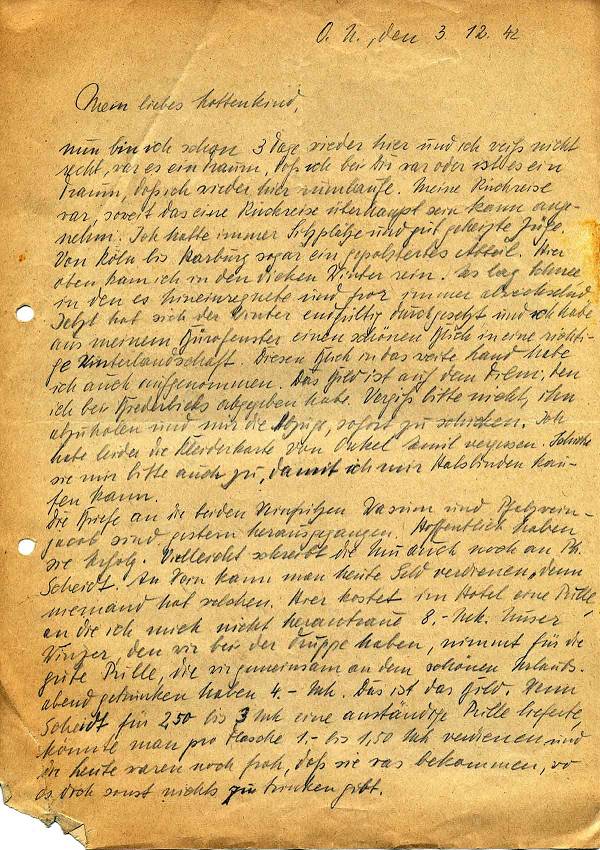 O. U., den 3. 12. 42
Mein liebes Lottenkind,
nun bin ich schon 3 Tage wieder hier und ich weiß nicht
recht, war es ein Traum, daß ich bei Dir war oder ist es ein
Traum, daß ich wieder hier rumlaufe. Meine Rückreise
war, soweit das eine Rückreise überhaupt sein kann ange-
nehm. Ich hatte immer Sitzplätze und gut geheizte Züge.
Von Köln bis Harburg sogar ein gepolstertes Abteil. Hier
oben kam ich in den dicken Winter rein. Es lag Schnee
in den es hineinregnete und fror immer abwechselnd
Jetzt hat sich der Winter endgültig durchgesetzt und ich habe
aus meinem Bürofenster einen schönen Blick in eine richti-
ge Winterlandschaft. Diesen Blick in das weite Land habe
ich auch aufgenommen. Das Bild ist auf dem Film, den
ich bei abgegeben habe. Vergiß bitte nicht, ihn
abzuholen und mir die Abzüge, sofort zu schicken. Ich
habe leider die Kleiderkarte von Onkel Emil vergessen. Schicke
sie mir bitte auch zu, damit ich mir Halsbinden kau-
fen kann.
Die Briefe an die beiden Weinfritzen und
jacob sind gestern herausgegangen. Hoffentlich haben
sie Erfolg. Vielleicht schreibst Du nun auch noch an Ph.
Scheidt. An Wein kann man heute Geld verdienen, denn
niemand hat welchen. Hier kostet im Hotel eine Pulle,
an die ich mich nicht herantraue 8.- Mk. Unser
Winzer, den wir bei der Truppe haben, nimmt für die
gute Pulle, die wir gemeinsam an dem schönen Urlaubs-
abend getrunken haben 4.- Mk. Das ist das Geld. Wenn
Scheidt für 2,50 bis 3 Mk eine anständige Pulle lieferte,
könnte man pro Flasche 1.- bis 1,50 Mk verdienen und
die Leute wären noch froh, daß sie was bekommen, wo
es doch sonst nichts zu trinken gibt.